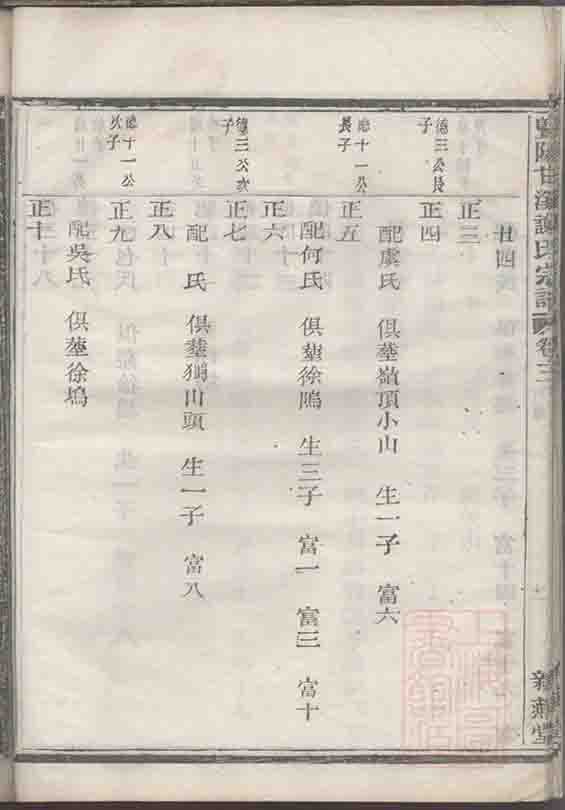 暨陽甘溪謝氏宗譜 卷三
新燕堂
廿四
正三
德三公長子
正四
配虞氏 俱塟嶺頂小山 生一子 富六
正五
應十一公長子
配何氏 俱塟徐塢 生三子 富一 富三 富十
正六
德三公次子
正七
配 氏 俱塟獅山頭 生一子 富八
正八
應十一公次子
正九
配吳氏 俱塟徐塢
正十